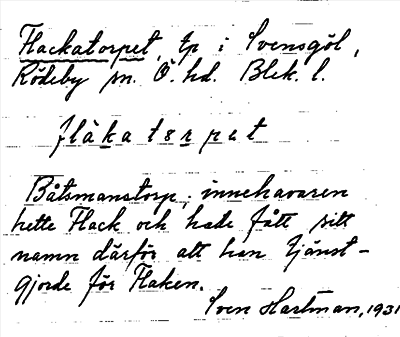 Flackatorpet, tp i Svensgöl,
Rödeby sn. Ö. hd. Blek. l.
flàkatɘrpɘt
Båtsmanstorp; innehavaren
hette Flack och hade fått sitt
namn därför att han tjänst-
gjorde för Flaken.
Sven Hartman, 1931